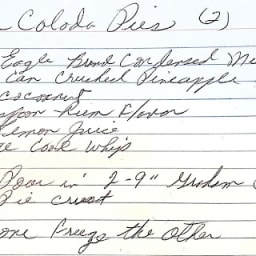 Colada Pies (2)
Eagle Brand Condensed
Can Crushed Pineapple
cocoanut
spoon Rum Flavor
Lemon Juice
Cool Whip
Pour in 2-9" Graham
Pie crust
one Freeze the Other